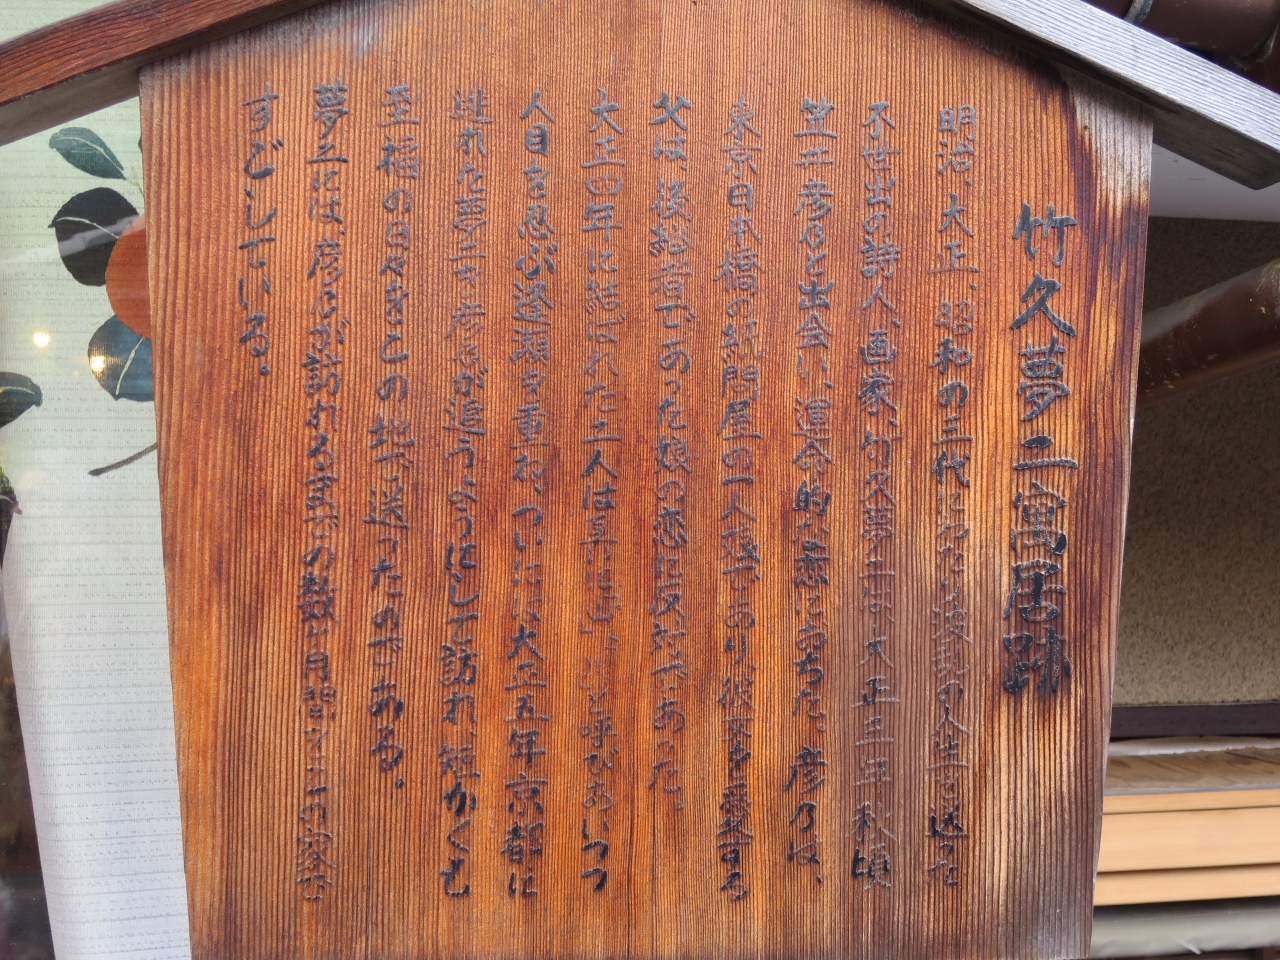 竹久夢二寓居跡
明治、大正、昭和の三代にわたり波乱の人生を送った
不世出の詩人、画家、竹久夢二は、大正三年秋頃
笠井彦乃と出会い、運命的な恋におちた。彦乃は、
東京日本橋の紙問屋の一人娘であり、彼女を愛する
父は後継者であった娘の恋に反対であった。
大正四年に結ばれた二人は と呼びあいつつ
人目を忍ぶ逢瀬を重ね、ついには、大正五年京都に
逃れた夢二を彦乃が追うようにして訪れ、短かくも
至福の日々をこの地で送ったのである。
夢二には、彦乃が訪れるまでの数ヶ月間をこの家で
すごしている。